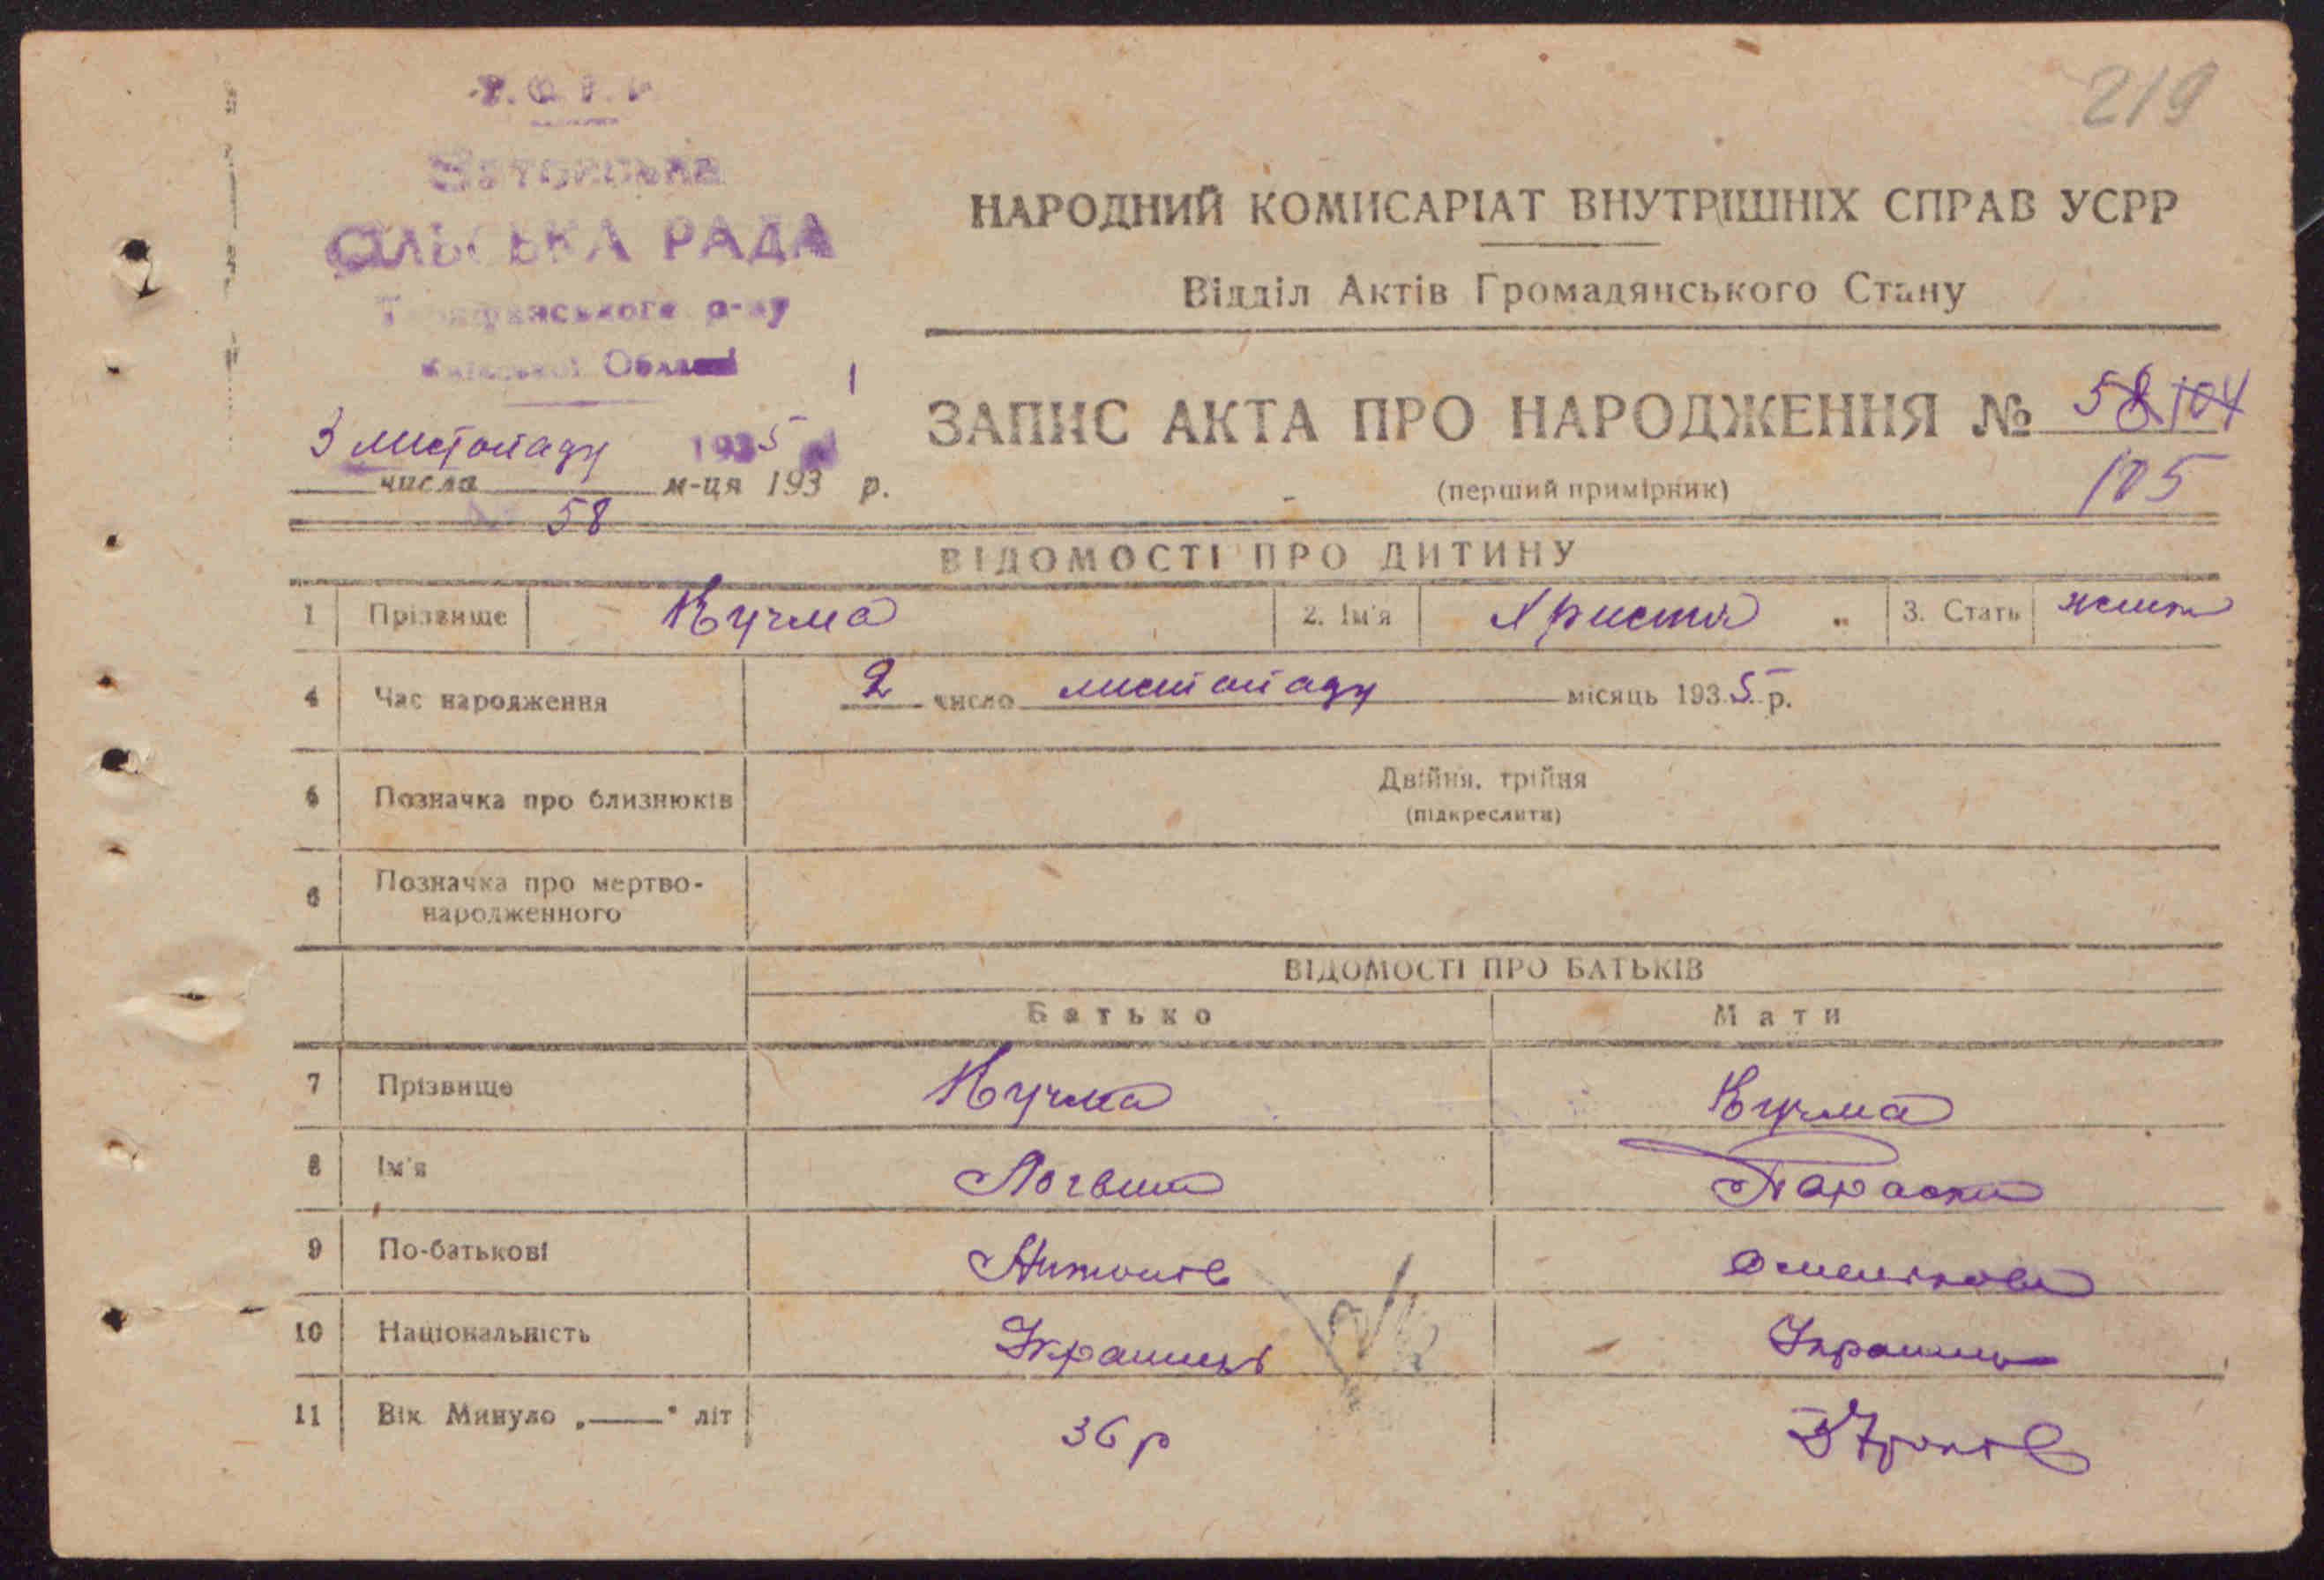 219
СІЛЬСЬКА РАДА
р-ну
Київської Області
3 листопаду 1935
числа м-ця 193 р.
58
НАРОДНИЙ КОМИСАРІАТ ВНУТРІШНІХ СПРАВ УСРР
Відділ Актів Громадянського Стану
ЗАПИС АКТА ПРО НАРОДЖЕННЯ № 58 104
(перший примірник) 105
ВІДОМОСТІ ПРО ДИТИНУ
1 Прізвище Кучма 2. Ім'я Христя 3. Стать жіноч
4 Час народження 2 число листопаду місяць 1935 р.
5 Позначка про близнюків Двійня, трійня
(підкреслити)
6 Позначка про мертво-
народженного
ВІДОМОСТІ ПРО БАТЬКІВ
Батько Мати
7 Прізвище Кучма Кучма
8 Ім'я Логвин Параска
9 По-батькові Антонів
10 Національність Українец Україн
11 Вік Минуло „——" літ 36 р 37 років